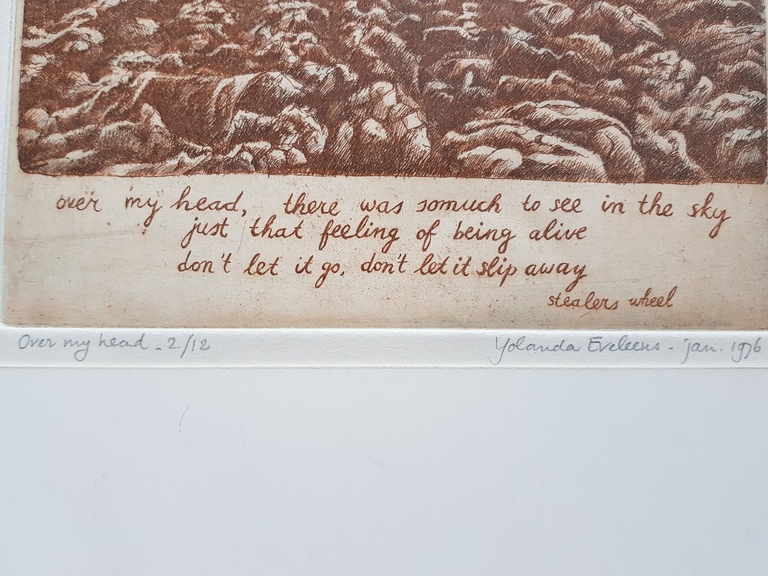 over my head, there was somuch to see in the sky
just that feeling of being alive
don't let it go, don't let it slip away
stealers wheel
Over my head - 2/12
Yolanda Eveleens - jan. 1976